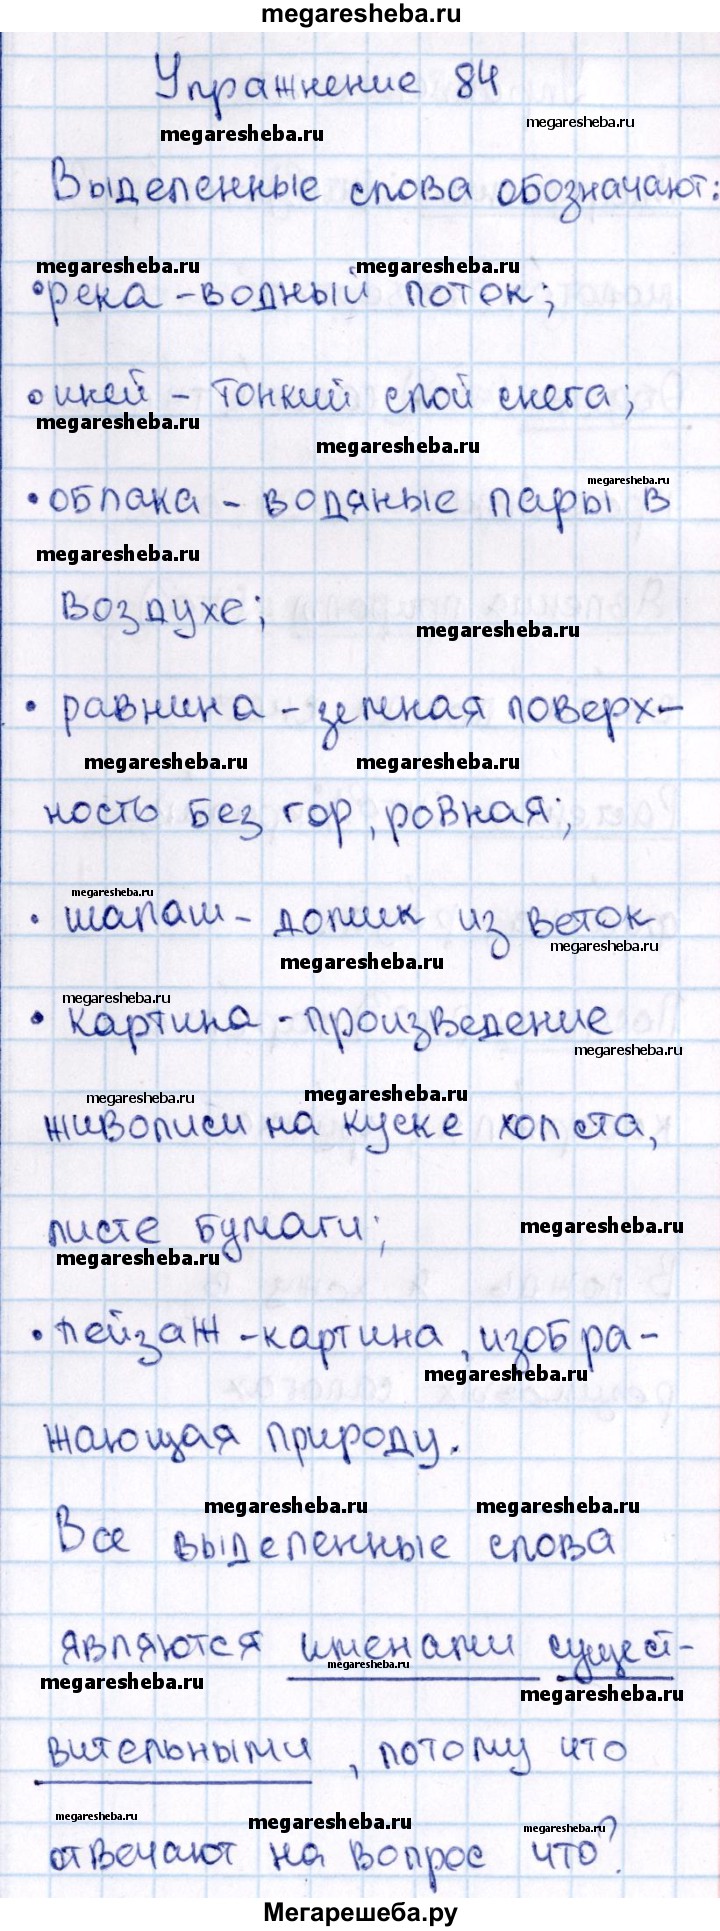 megaresheba.ru
Упражнение 84
megaresheba.ru megaresheba.ru
Выделенные слова обозначают:
megaresheba.ru megaresheba.ru
•река - водный поток;
•иней - тонкий слой снега;
megaresheba.ru
megaresheba.ru
megaresheba.ru
•облака - водяные пары в
megaresheba.ru
воздухе;
megaresheba.ru
• равнина - земная поверх-
megaresheba.ru megaresheba.ru
ность без гор, ровная;
megaresheba.ru
• шалаш - домик из веток
megaresheba.ru
megaresheba.ru
megaresheba.ru
• картина - произведение
megaresheba.ru
megaresheba.ru megaresheba.ru
живописи на куске холста,
листе бумаги;
megaresheba.ru
megaresheba.ru
• пейзаж - картина, изобра-
megaresheba.ru
жающая природу.
megaresheba.ru megaresheba.ru
Все выделенные слова
являются именами сущест-
megaresheba.ru
megaresheba.ru
megaresheba.ru
вительными, потому что
megaresheba.ru
megaresheba.ru
megaresheba.ru
отвечают на вопрос что?
Мегарешеба.ру